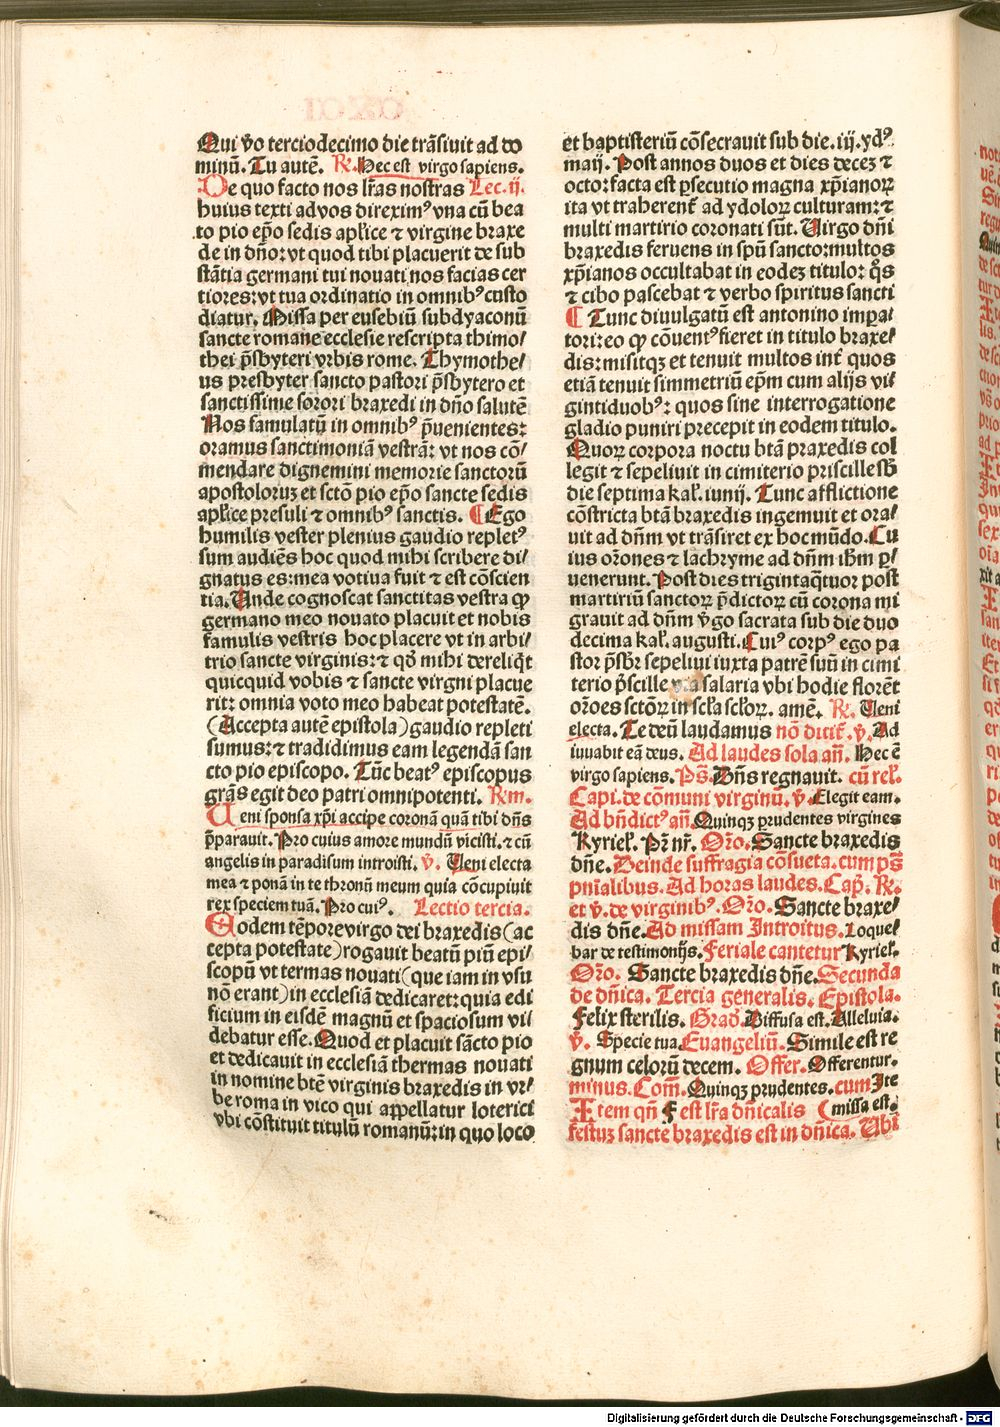 Qui v̄o terciodecimo die trāsiuit ad do
minū. Tu autē. R̄. Hec est virgo sapiens.
De quo facto nos lr̄as nostras Lec. ij.
huius texti ad vos direximꝰ vna cū bea
to pio ep̄o sedis apl̄ice ⁊ virgine braxe
de in dn̄o: vt quod tibi placuerit de sub
stātia germani tui nouati nos facias cer
tiores: vt tua ordinatio in omnibꝰ custo
diatur. Missa per eusebiū subdyaconū
sancte romane ecclesie rescripta thimo⸗
thei p̄sbyteri vrbis rome. Thymothe⸗
us presbyter sancto pastori p̄sbytero et
sanctissime sorori braxedi in dn̄o salutē
Nos famulatū in omnibꝰ p̄uenientes:
oramus sanctimoniā vestrā: vt nos cō⸗
mendare dignemini memorie sanctorū
apostoloruꝫ et sctō pio ep̄o sancte sedis
apl̄ice presuli ⁊ omnibꝰ sanctis. ¶ Ego
humilis vester plenius gaudio repletꝰ
sum audiēs hoc quod mihi scribere di⸗
gnatus es: mea votiua fuit ⁊ est cōscien
tia. Unde cognoscat sanctitas vestra ꝙ
germano meo nouato placuit et nobis
famulis vestris hoc placere vt in arbi⸗
trio sancte virginis: ⁊ qd̄ mihi dereliq̄t
quicquid vobis ⁊ sancte virgni placue
rit: omnia voto meo habeat potestatē.
(Accepta autē epistola) gaudio repleti
sumus: ⁊ tradidimus eam legendā san
cto pio episcopo. Tūc beatꝰ episcopus
grās egit deo patri omnipotenti. R̄m.
Ueni sponsa xp̄i accipe coronā quā tibi dn̄s
p̄parauit. Pro cuius amore mundū vicisti. ⁊ cū
angelis in paradisum introisti. v̄. Ueni electa
mea ⁊ ponā in te thronū meum quia cōcupiuit
rex speciem tuā. Pro cuiꝰ. Lectio tercia.
Eodem tēpore virgo dei braxedis (ac
cepta potestate) rogauit beatū piū epi⸗
scopū vt termas nouati (que iam in vsu
nō erant) in ecclesiā dedicaret: quia edi
ficium in eisdē magnū et spaciosum vi⸗
debatur esse. Quod et placuit sācto pio
et dedicauit in ecclesiā thermas nouati
in nomine btē virginis braxedis in vr⸗
be roma in vico qui appellatur loterici
vbi cōstituit titulū romanū: in quo loco
et baptisteriū cōsecrauit sub die. iij. ydꝰ.
maij. Post annos duos et dies deceꝫ ⁊
octo: facta est ꝑsecutio magna xp̄ianoꝝ
ita vt traherent̄ ad ydoloꝝ culturam: ⁊
multi martirio coronati sūt. Uirgo dn̄i
braxedis feruens in spū sancto: multos
xp̄ianos occultabat in eodeꝫ titulo: qͦs
⁊ cibo pascebat ⁊ verbo spiritus sancti
¶ Tunc diuulgatū est antonino impa⸗
tori: eo ꝙ cōuentꝰ fieret in titulo braxe⸗
dis: misitqꝫ et tenuit multos int̄ quos
etiā tenuit simmetriū ep̄m cum alijs vi⸗
gintiduobꝰ: quos sine interrogatione
gladio puniri precepit in eodem titulo.
Quoꝝ corpora noctu btā praxedis col
legit ⁊ sepeliuit in cimiterio priscille sb̄
die septima kal̄. iunij. Tunc afflictione
cōstricta btā braxedis ingemuit et ora⸗
uit ad dn̄m vt trāsiret ex hoc mūdo. Cu
ius orōnes ⁊ lachryme ad dn̄m ihm̄ p̱⸗
uenerunt. Post dies trigintaq̄tuor post
martiriū sanctoꝝ p̄dictoꝝ cū corona mi
grauit ad dn̄m v̄go sacrata sub die duo
decima kal̄. augusti. Cuiꝰ corpꝰ ego pa
stor p̄sbr̄ sepeliui iuxta patrē suū in cimi
terio p̄scille via salaria vbi hodie florēt
orōes sctōꝝ in scl̄a scl̄oꝝ. amē. R̄. Ueni
electa. Te deū laudamus nō dicit̄. v̄. Ad
iuuabit eā deus. Ad laudes sola an̄. Hec ē
virgo sapiens. Ps̄. Dn̄s regnauit. cū rel̄.
Capi. de cōmuni virginū. v̄. Elegit eam.
Ad bn̄dictꝰ an̄. Quinqꝫ prudentes virgines
Kyriel̄. Pr̄ nr̄. Orō. Sancte braxedis
dn̄e. Deinde suffragia cōsueta. cum ps̄
pn̄ialibus. Ad horas laudes. Cap̄. R̄.
et v̄. de virginibꝰ. Orō. Sancte braxe⸗
dis dn̄e. Ad missam Introitus. Loque⸗
bar de testimonijs. Feriale cantetur Kyriel̄.
Orō. Sancte braxedis dn̄e. Secunda
de dn̄ica. Tercia generalis. Epistola.
Felix sterilis. Grad̄. Diffusa est. Alleluia.
v̄. Specie tua. Euangeliū. Simile est re
gnum celorū decem. Offer. Offerentur.
minus. Com̄. Quinqꝫ prudentes. cum Ite
Item qn̄ F est lr̄a dn̄icalis (missa est.
festuꝫ sancte braxedis est in dn̄ica. Ubi
Digitalisierung gefördert durch die Deutsche Forschungsgemeinschaft - DFG